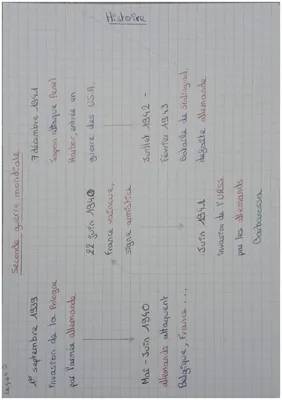 Histoire
Seconde guerre mondiale
1er septembre 1939
Invasion de la Pologne
par l'armée allemande
Mai - Juin 1940
Allemands attaquent
Belgique, France...
22 Juin 1940
France vaincue,
signe armistice
Juin 1941
Invasion de l'URSS
par les allemands
Barbarossa
7 décembre 1941
Japon attaque Pearl
Harbor, entrée en
guerre des U.S.A.
Juillet 1942 -
Février 1943
Bataille de Stalingrad,
défaite allemande.